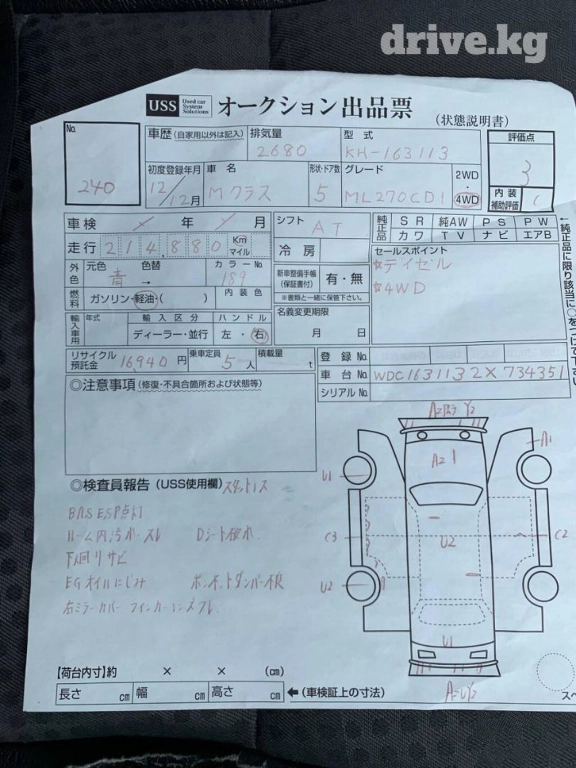 drive.kg
USS Used car System Solutions オークション出品票 (状態説明書)
No. 240
車歴 (自家用以外は記入) 排気量 2680 型式 KH-163113
評価点 3
内装補助評価 C
初度登録年月 12/12月 車名 Mクラス 形状・ドア数 5 グレード ML270CDI 2WD・4WD
車検 年 月 シフト AT
走行 214,880 Km マイル 冷房
純正品 SR 純AW PS PW
カワ TV ナビ エアB
←純正品に限り該当に○をつけて
外色 元色 青 色替 → カラーNo. 189
燃料 ガソリン・軽油・( ) 内装色
新車整備手帳 (保証書付) 有・無
※書類と一緒に保管下さい
セールスポイント
☆ディゼル
☆4WD
輸入車用 年式 輸入区分 ディーラー・並行 ハンドル 左・右
名義変更期限 月 日
リサイクル預託金 16940円 乗車定員 5人 積載量 t
登録No.
車台No. WDC1631132X734351
シリアルNo.
◎注意事項 (修復・不具合箇所および状態等)
◎検査員報告 (USS使用欄) スタットレス
BAS ESP点灯
ルーム内汚れ・スレ Dシート破れ
下廻りサビ
EGオイルにじみ ボンネットダンパー不良
右ミラーカバー ウインカーレンズスレ
A2
A1
A2 1
U1
C3
U2
C2
U2
U1
【荷台内寸】約 × × (cm)
長さ cm 幅 cm 高さ cm ←(車検証上の寸法)
スペ